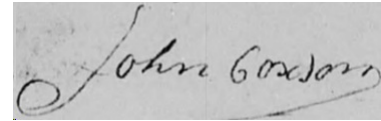 John Coxson